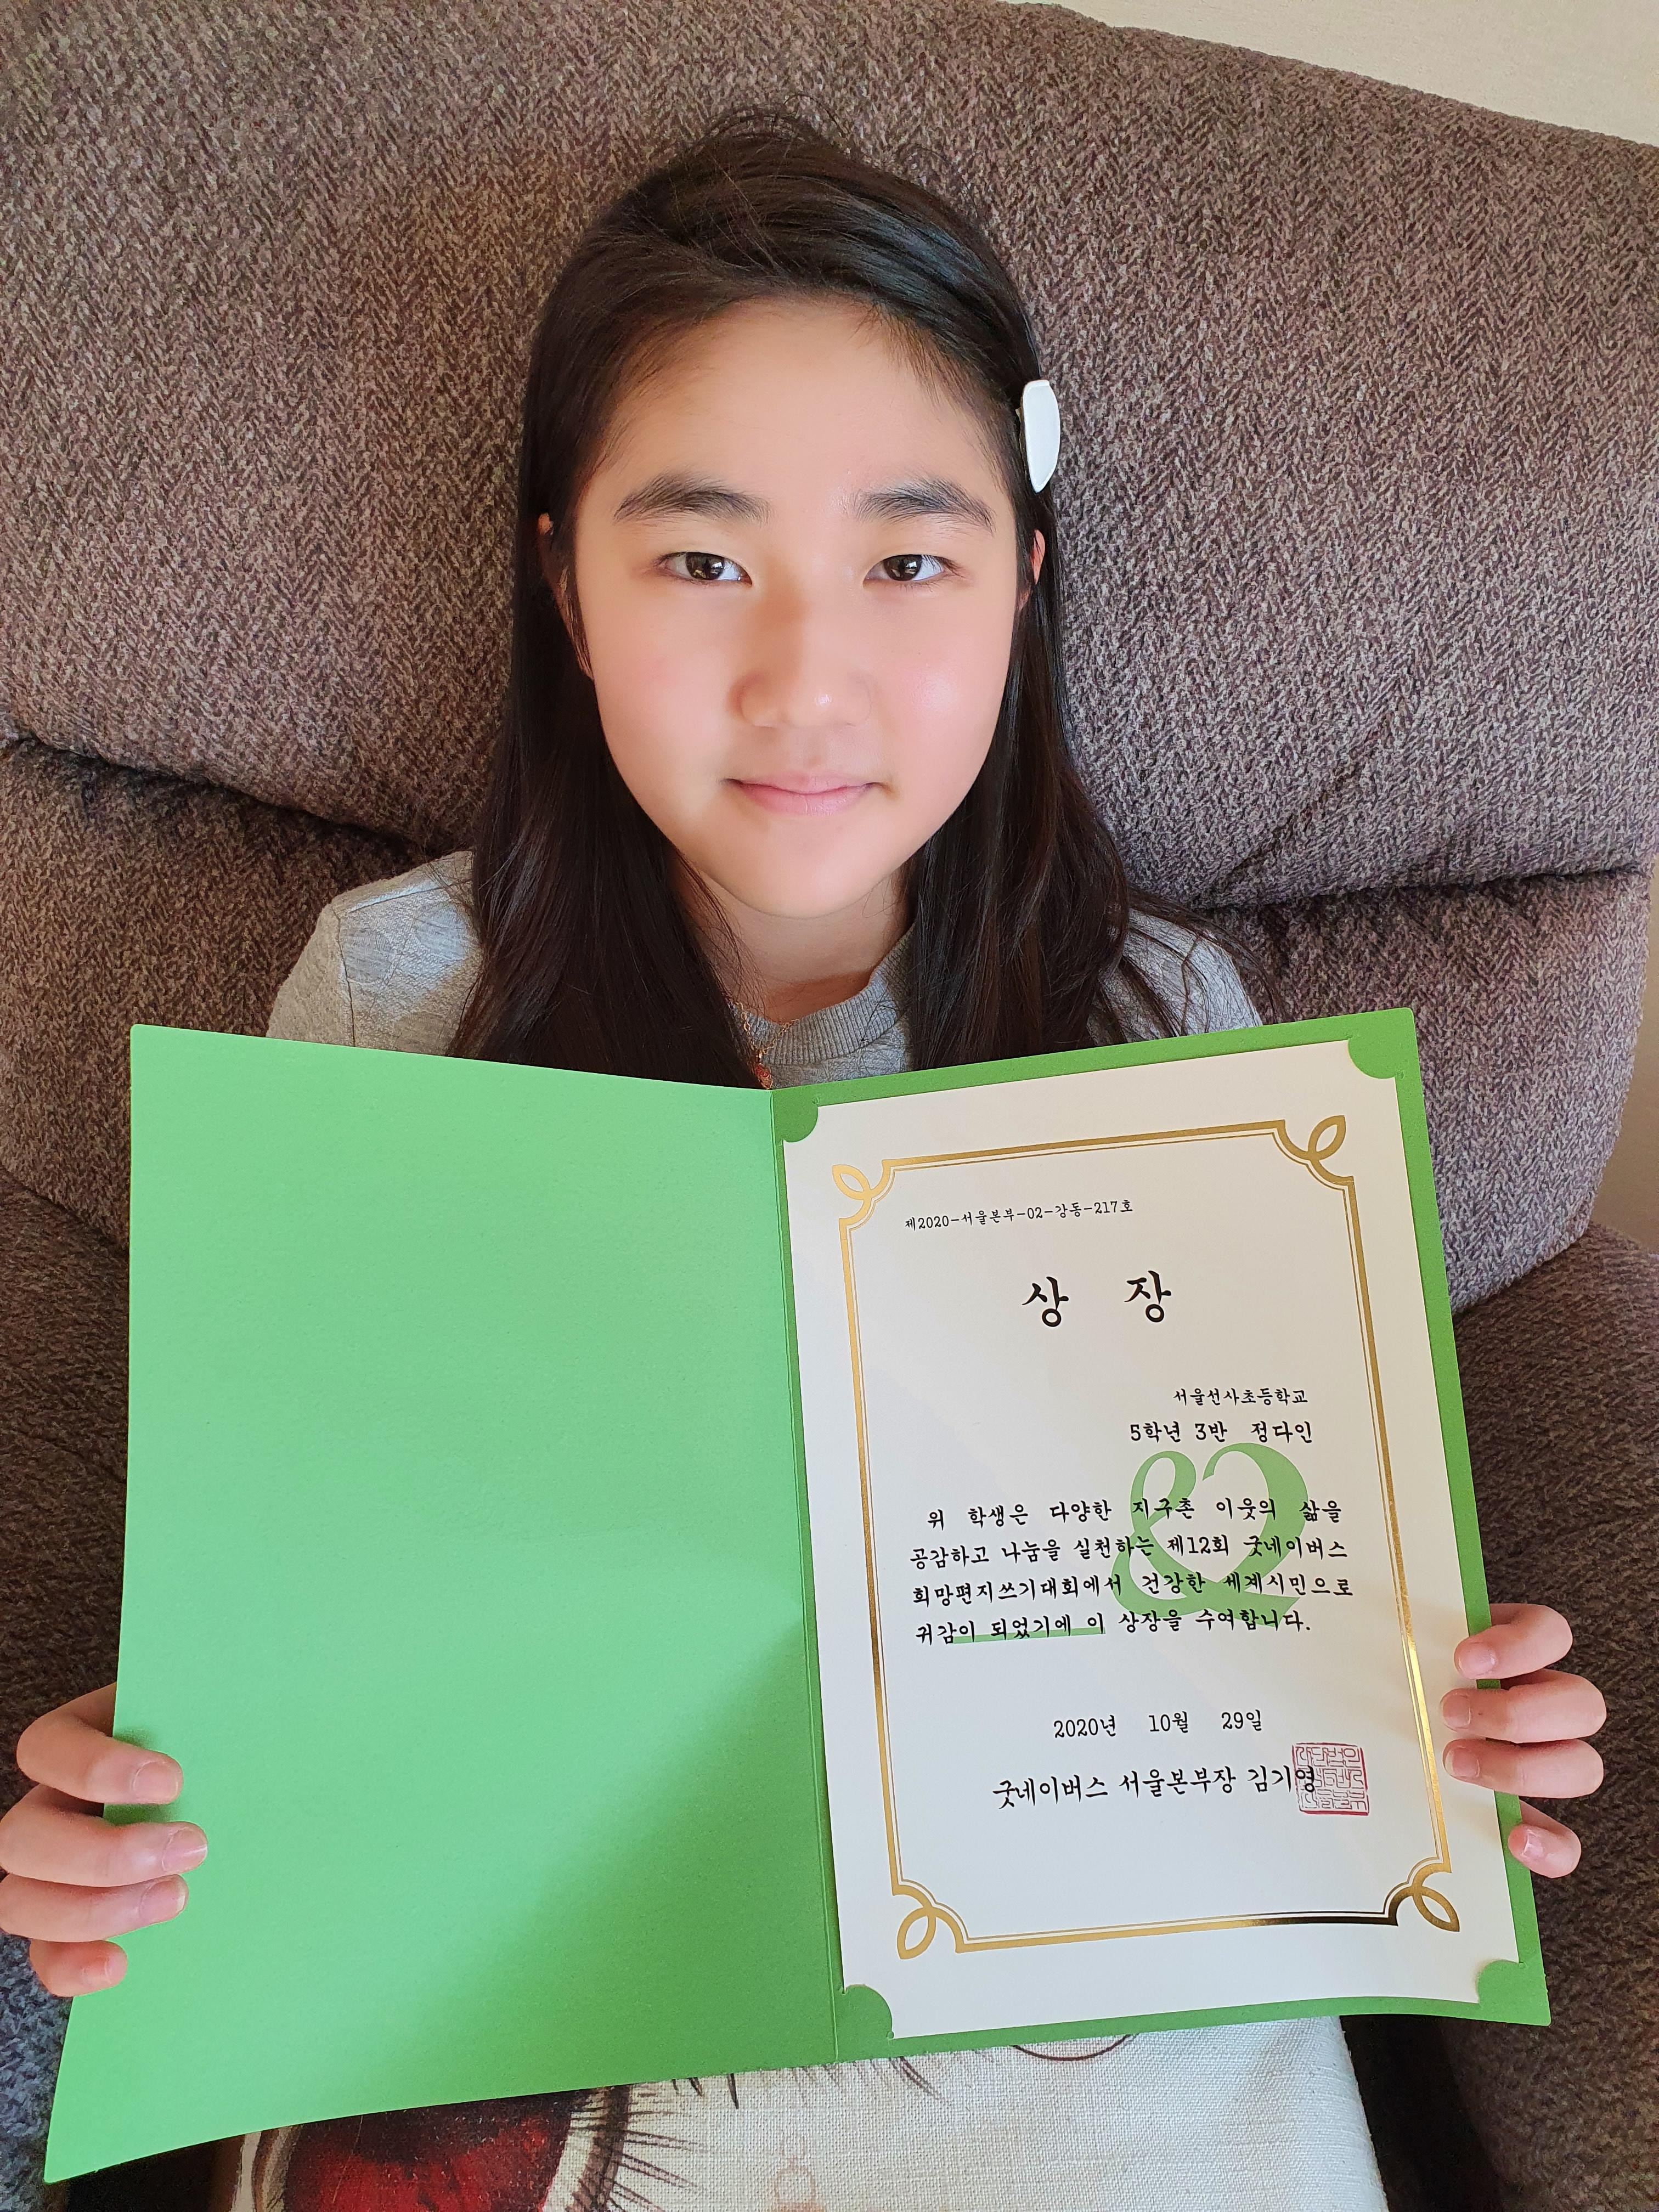 제2020-서울본부-02-강동-217호
상 장
서울선사초등학교
5학년 3반 정다인
위 학생은 다양한 지구촌 이웃의 삶을
공감하고 나눔을 실천하는 제12회 굿네이버스
희망편지쓰기대회에서 건강한 세계시민으로
귀감이 되었기에 이 상장을 수여합니다.
2020년 10월 29일
굿네이버스 서울본부장 김기영